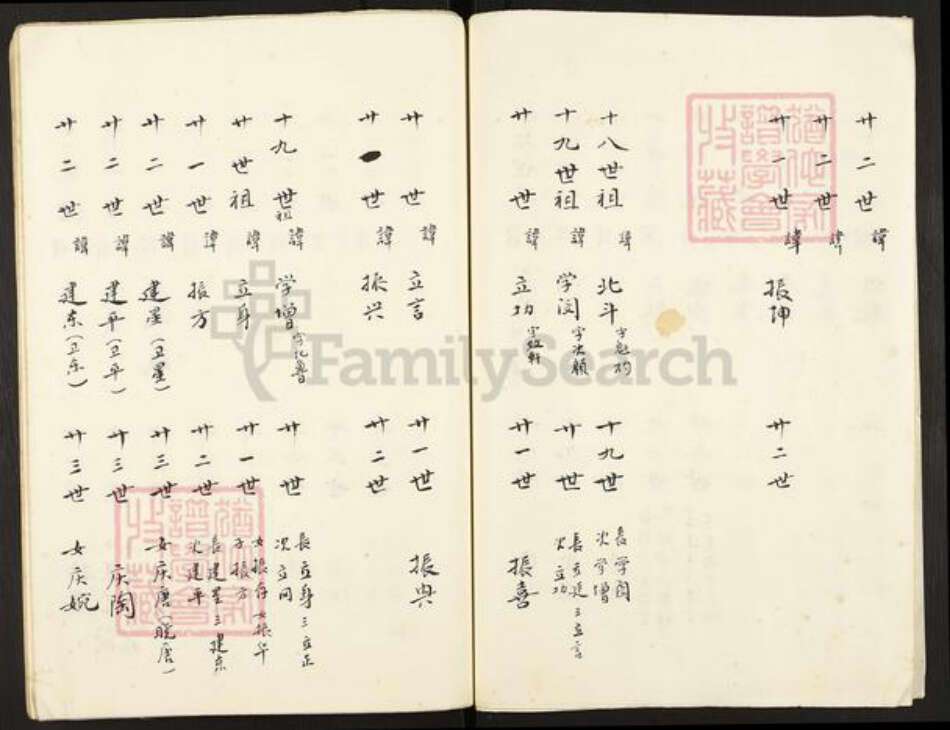 廿二世 諱
廿二世 諱
廿一世 諱 振坤
廿二世
十八世祖 諱 北斗 字
十九世 長学闵 次学增
十九世祖 諱 学闵 字次顏
廿世 長立廷 三立言 次立功
廿世 諱 立功 字 軒
廿一世 振喜
廿世 諱 立言
廿一世 振兴
廿一世 諱 振兴
廿二世
十九世祖 諱 学增 字 魯
廿世 長立身 三立正 次立同
廿世祖 諱 立身
廿一世 女振存 女振华 子振方
廿一世 諱 振方
廿二世 長建星 三建东 次建平
廿二世 諱 建星(卫星)
廿三世 女庆唐(晓唐)
廿二世 諱 建平(卫平)
廿三世 庆陶
廿二世 諱 建东(卫东)
廿三世 女庆婉
猶他家譜學會收藏
猶他家譜學會收藏
FamilySearch